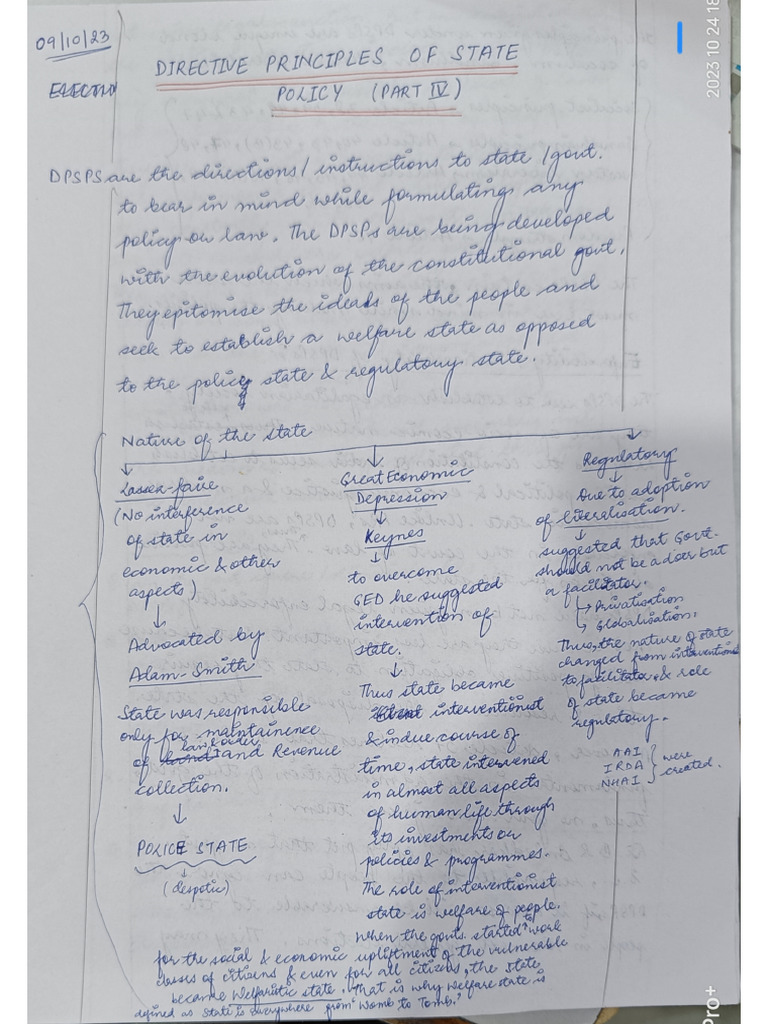 09/10/23
2023 10 24 18
DIRECTIVE PRINCIPLES OF STATE
POLICY (PART IV)
DPSPs are the directions/instructions to state/govt.
to bear in mind while formulating any
policy or law. The DPSPs are being developed
with the evolution of the constitutional govt.
They epitomise the ideals of the people and
seek to establish a welfare state as opposed
to the police state & regulatory state.
Nature of the state
Lasser-faire
(No interference
of state in
economic & other
aspects)
Advocated by
Adam-Smith
State was responsible
only for maintainence
law & order
of and Revenue
collection.
POLICE STATE
(despotic)
Great Economic
Depression
Keynes
to overcome
GED he suggested
intervention of
state.
Thus state became
interventionist
& in due course of
time, state intervened
in almost all aspects
of human life through
its investments or
policies & programmes.
The role of interventionist
state is welfare of people.
When the govts. started to work
for the social & economic upliftment of the vulnerable
classes of citizens & even for all citizens, the state
became welfaristic state. That is why welfare state is
defined as state is everywhere from "Womb to Tomb."
Regulatory
Due to adoption
of liberalisation.
suggested that Govt.
should not be a doer but
a facilitator.
Privatisation
Globalisation.
Thus, the nature of state
changed from interventionist
to facilitator & role
of state became
regulatory.
AAI
IRDA
NHAI
were
created.
Pro+